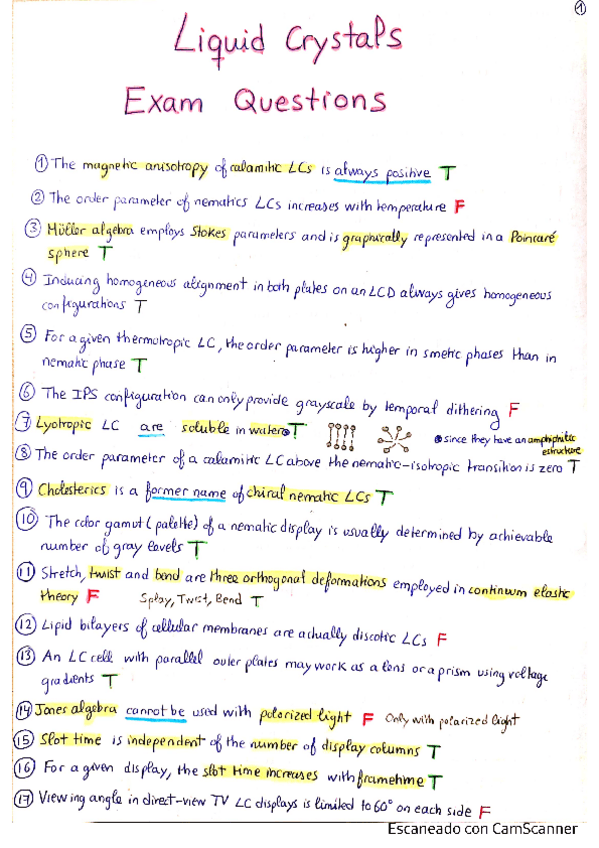 1
Liquid Crystals
Exam Questions
1 The magnetic anisotropy of calamitic LCs is always positive T
2 The order parameter of nematics LCs increases with temperature F
3 Müller algebra employs Stokes parameters and is graphically represented in a Poincaré
sphere T
4 Inducing homogeneous alignment in both plates on an LCD always gives homogeneous
configurations T
5 For a given thermotropic LC, the order parameter is higher in smetic phases than in
nematic phase T
6 The IPS configuration can only provide grayscale by temporal dithering F
7 Lyotropic LC are soluble in water T since they have an amphiphilic
estructure
8 The order parameter of a calamitic LC above the nematic-isotropic transition is zero T
9 Cholesterics is a former name of chiral nematic LCs T
10 The color gamut (palette) of a nematic display is usually determined by achievable
number of gray levels T
11 Stretch, twist and bend are three orthogonal deformations employed in continuum elastic
theory F Splay, Twist, Bend T
12 Lipid bilayers of cellular membranes are actually discotic LCs F
13 An LC cell with parallel outer plates may work as a lens or a prism using voltage
gradients T
14 Jones algebra cannot be used with polarized light F Only with polarized light
15 Slot time is independent of the number of display columns T
16 For a given display, the slot time increases with frametime T
17 Viewing angle in direct-view TV LC displays is limited to 60° on each side F
Escaneado con CamScanner